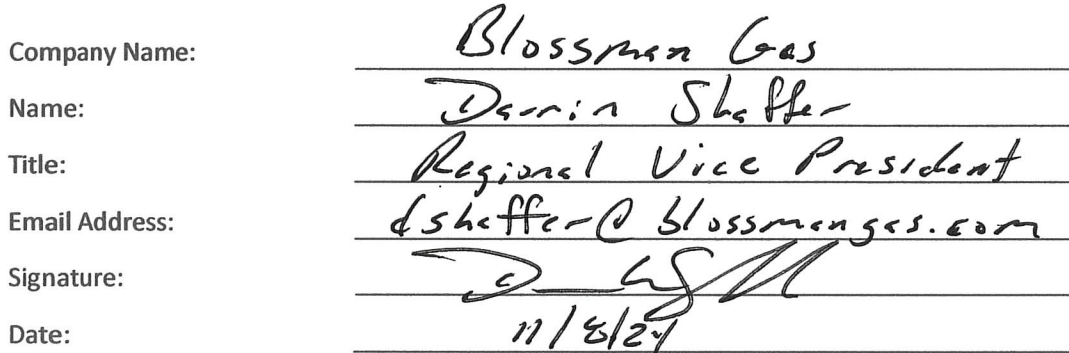 Company Name: Blossman Gas
Name: Darrin Shaffer
Title: Regional Vice President
Email Address: dshaffer@blossmangas.com
Signature:
Date: 11/8/24